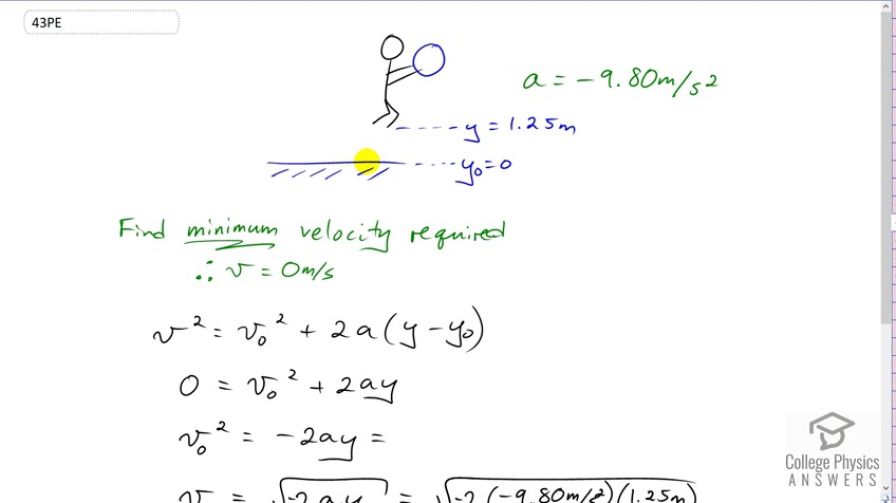 43PE
a = -9.80m/s²
y = 1.25m
y₀=0
Find minimum velocity required
∴ v = 0m/s
v² = v₀² + 2a(y-y₀)
0 = v₀² + 2ay
v₀² = -2ay =
v = √-2ay = √-2(-9.80m/s²)(1.25m)
College Physics
ANSWERS